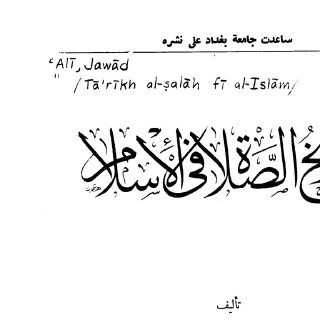 ساعدت جامعة بغداد على نشره
ʿAlī, Jawād
" /Tā'rīkh al-ṣalāh fī al-Islām/
الصلاة في الإسلام
تأليف